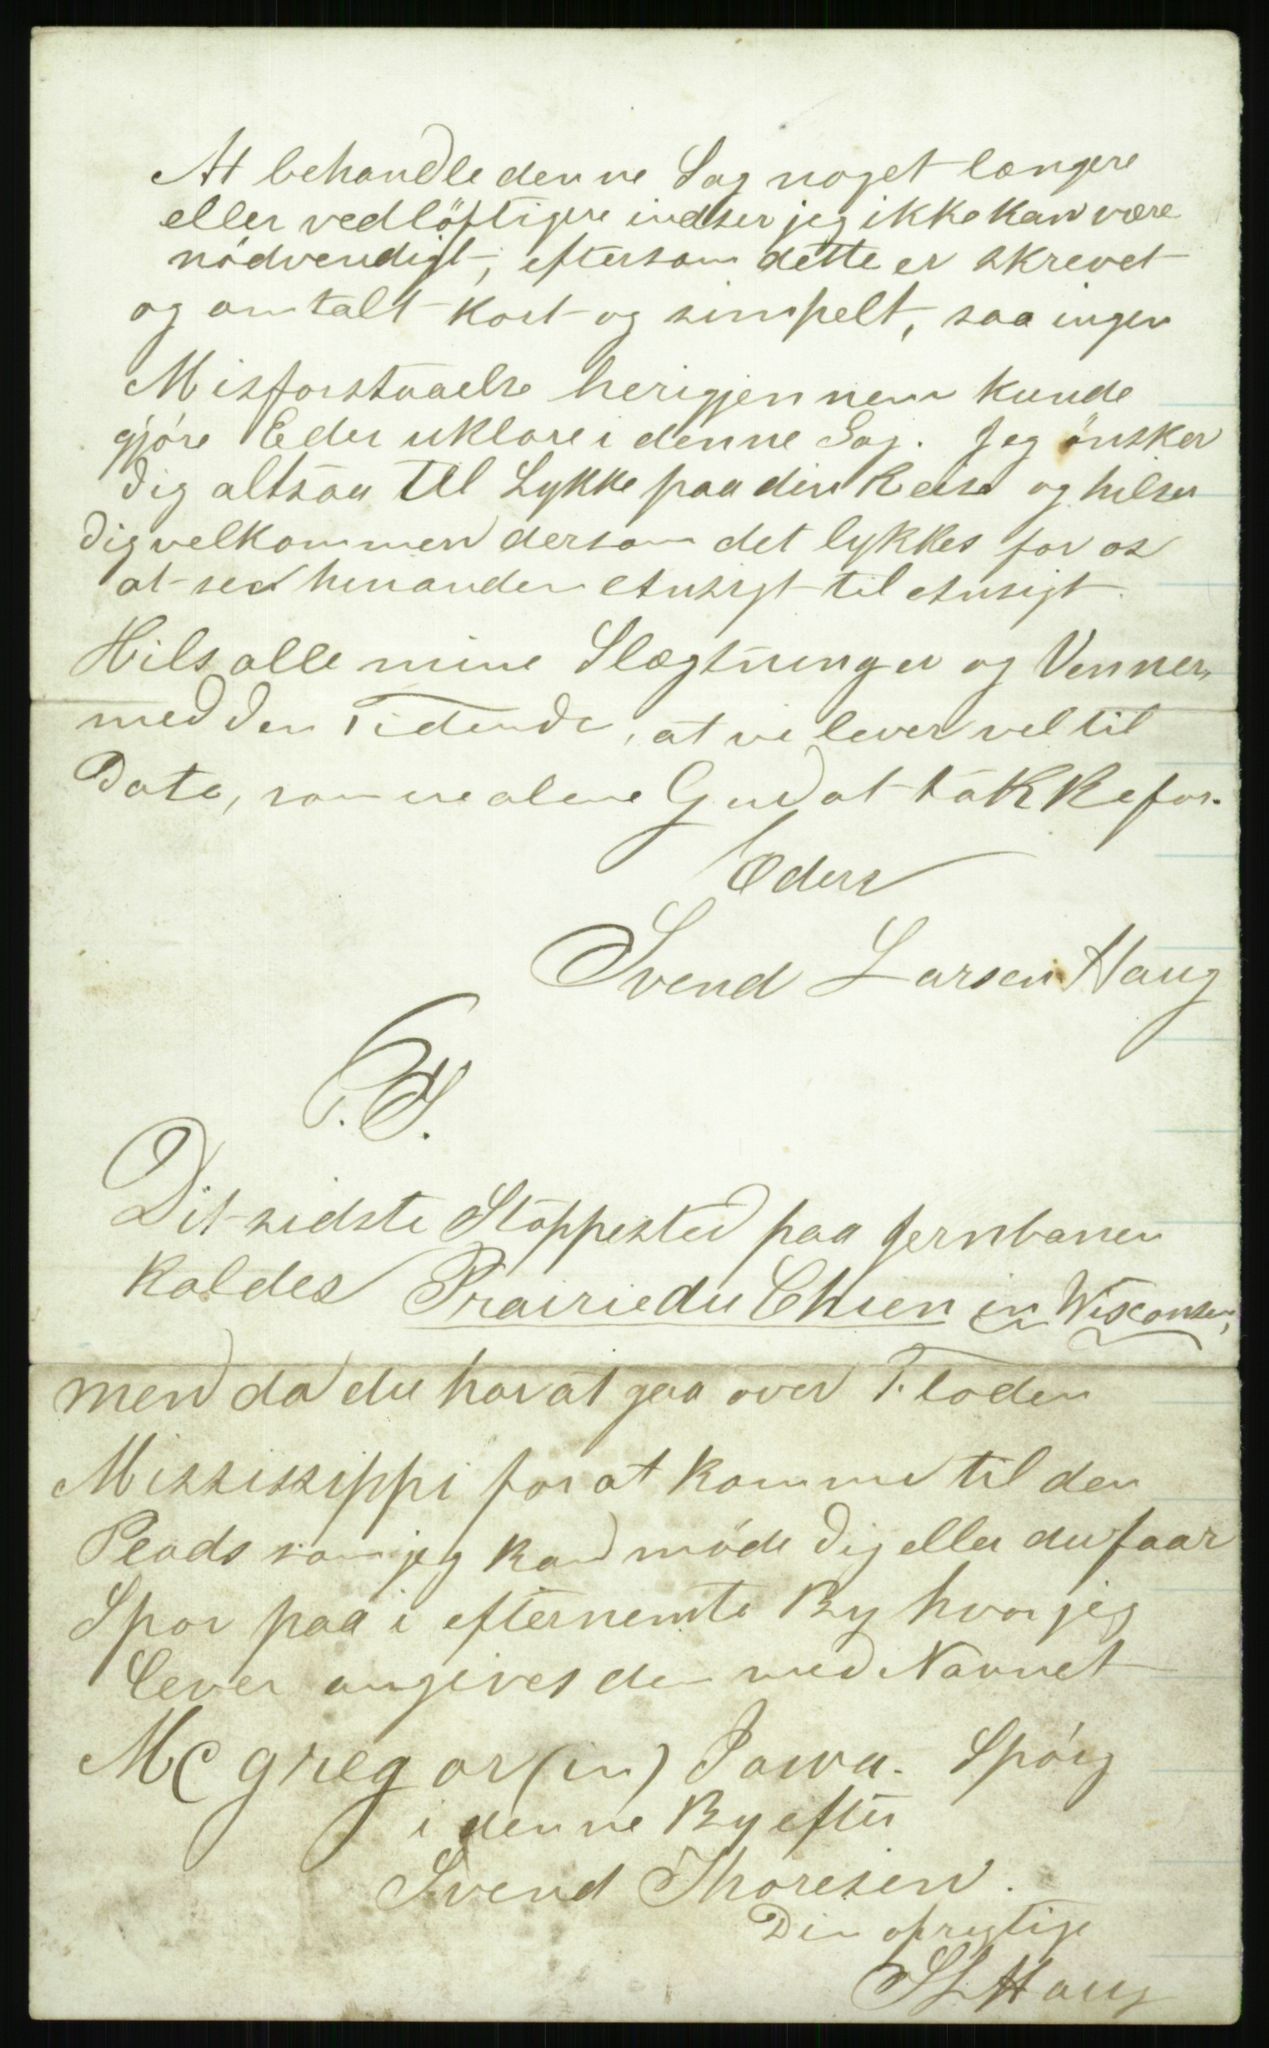 At behandle denne Sag noget længere
eller vedlöftigere indser jeg ikke kan være
nödvendigt, eftersom dette er skrevet
og omtalt kort og simpelt, saa ingen
Misforstaaelse herigjennem kunde
gjöre Eder uklare i denne Sag. Jeg önsker
dig altsaa til Lykke paa din Reise og hilser
dig velkommen dersom det lykkes for os
at see hinanden Ansigt til Ansigt.
Hils alle mine Slægtninger og Venner
med den Tidende, at vi lever vel til
Dato, som vi alene Gud at takke for.
Eders
Svend Larsen Haug
P.S.
Dit sidste Stoppested paa Jernbanen
kaldes Prairiedu Chien in Wisconsin,
men da du har at gaa over Floden
Mississippi for at komme til den
Plads som jeg kand möde dig eller du faar
Spor paa i efternemte By hvor jeg
lever angives den med Navnet
Mc gregor (in) Jowa. Spörg
i denne By efter
Svend Thoresen.
Din oprigtige
SL Haug